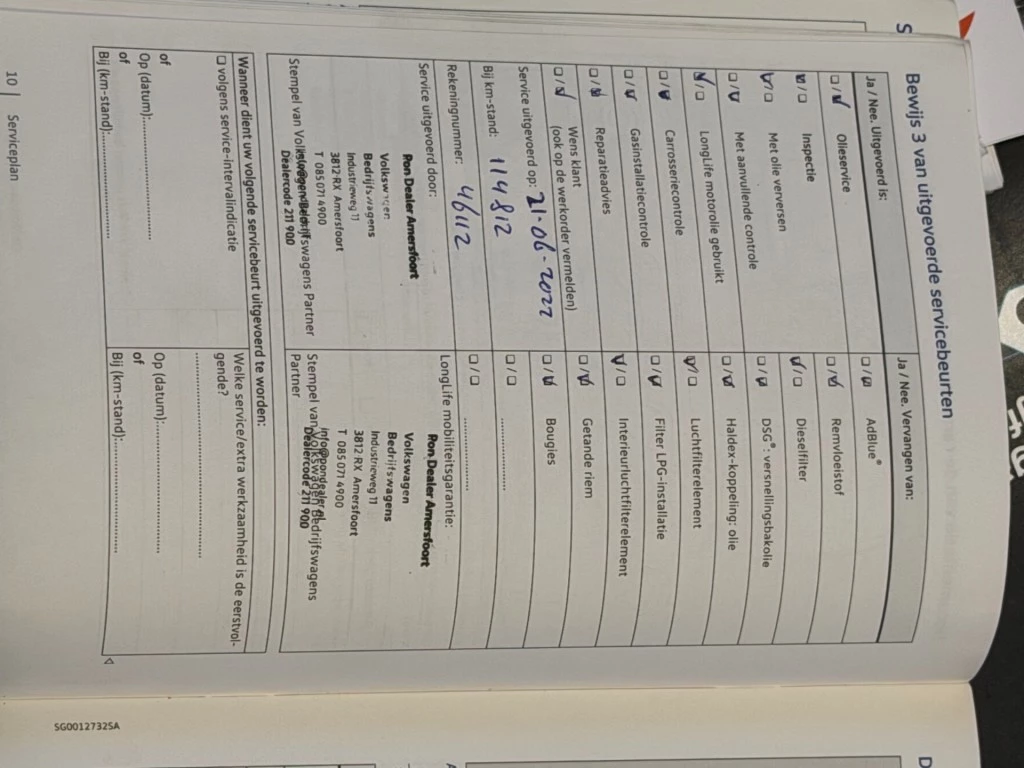 Bewijs 3 van uitgevoerde servicebeurten
Ja / Nee. Uitgevoerd is:
Olieservice
Inspectie
Met olie verversen
Met aanvullende controle
LongLife motorolie gebruikt
Carrosseriecontrole
Gasinstallatiecontrole
Reparatieadvies
Wens klant
(ook op de werkorder vermelden)
Service uitgevoerd op: 21-06-2022
Bij km-stand: 114812
Rekeningnummer: 46112
Service uitgevoerd door:
Pon Dealer Amersfoort
Volkswagen
Bedrijfswagens
Industrieweg 11
3812 RX Amersfoort
T 085 071 4900
Stempel van Volkswagen Bedrijfswagens Partner
Dealercode 211 900
Ja / Nee. Vervangen van:
AdBlue®
Remvloeistof
Dieselfilter
DSG®: versnellingsbakolie
Haldex-koppeling: olie
Luchtfilterelement
Filter LPG-installatie
Interieurluchtfilterelement
Getande riem
Bougies
LongLife mobiliteitsgarantie:
Pon Dealer Amersfoort
Volkswagen
Bedrijfswagens
Industrieweg 11
3812 RX Amersfoort
T 085 071 4900
info@pondealer.nl
Stempel van Volkswagen Bedrijfswagens
Partner
Dealercode 211 900
Wanneer dient uw volgende servicebeurt uitgevoerd te worden:
volgens service-intervalindicatie
of
Op (datum):
of
Bij (km-stand):
Welke service/extra werkzaamheid is de eerstvol-
gende?
Op (datum):
of
Bij (km-stand):
10 | Serviceplan
SG0012732SA
S
D